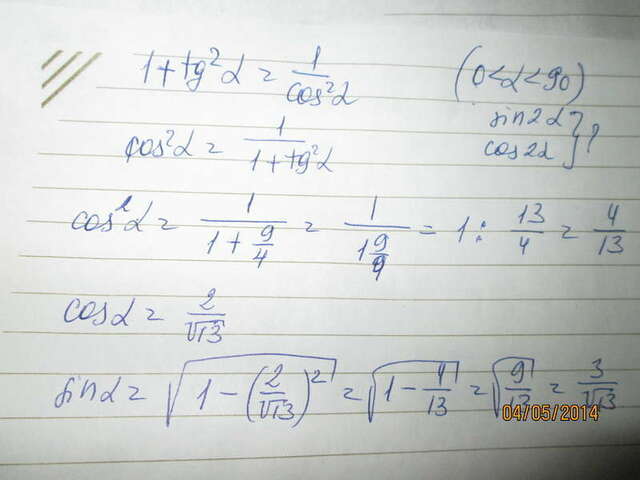 1+tg²α = 1/cos²α (0<α<90)
sin2α
cos²α = 1/(1+tg²α) cos2α } ?
cos²α = 1/(1+9/4) = 1/(1 9/4) = 1 : 13/4 = 4/13
cosα = 2/√13
sinα = √(1-(2/√13)²) = √(1-4/13) = √(9/13) = 3/√13
04/05/2014